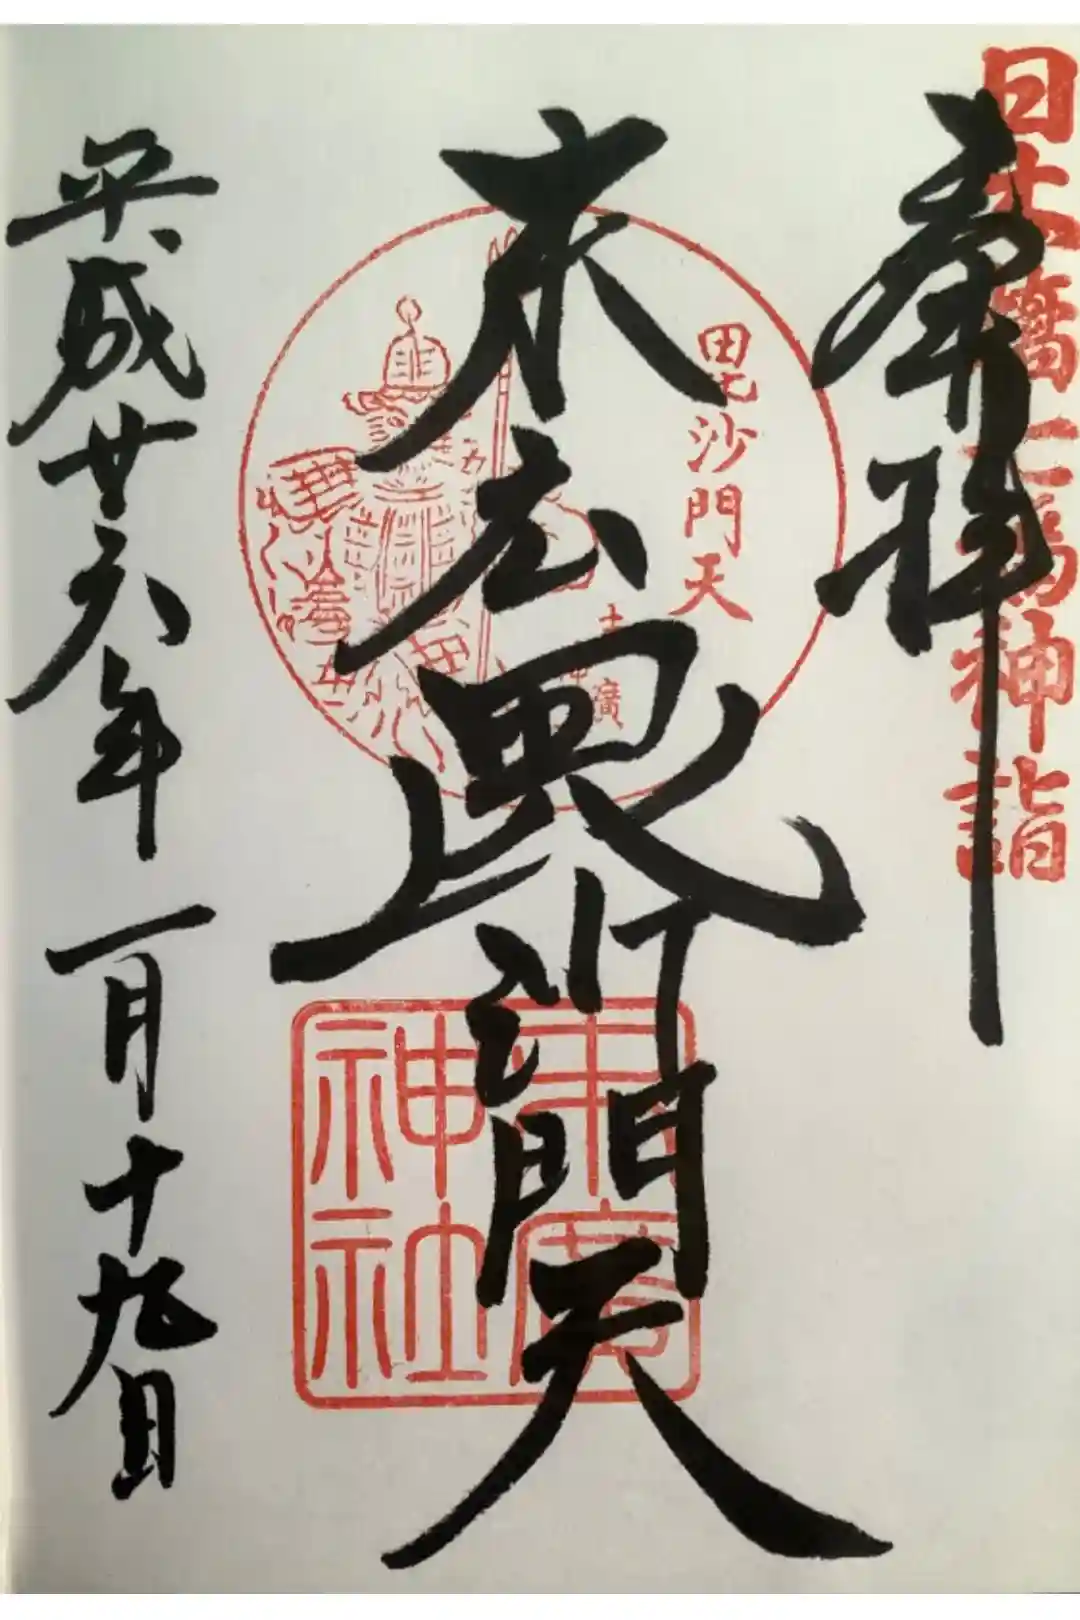 日本橋七福神詣
奉拝
末広毘沙門天
毘沙門天
末廣
神社
平成廿六年一月十九日